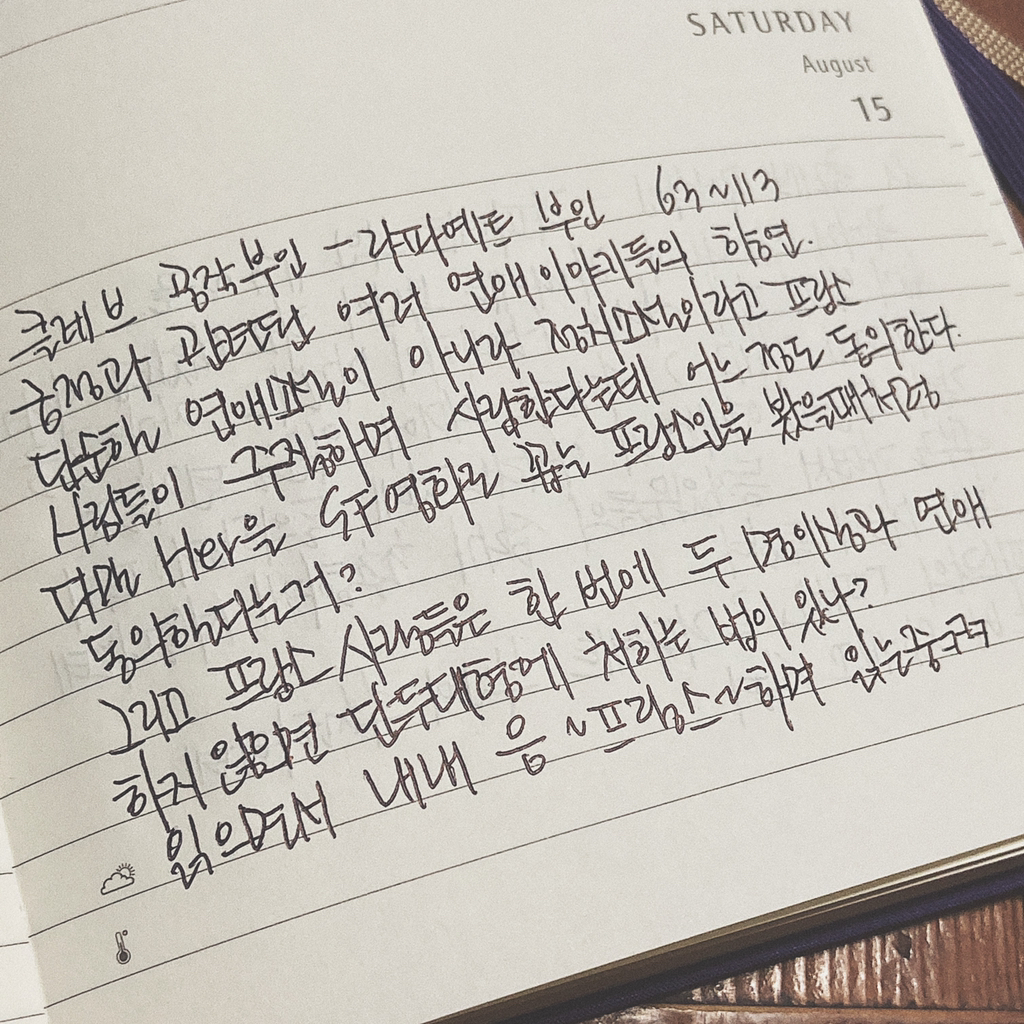 SATURDAY
August
15
클레브 공작부인 - 라파예트 부인 63~113
궁정과 관련된 여러 연애이야기들의 향연.
단순한 연애소설이 아니라 정치소설이라고 프랑스
사람들이 주장하며 사랑한다는데 어느 정도 동의한다.
다만 Her을 SF영화로 꼽는 프랑스인을 봤을때처럼
동의한다는거?
그리고 프랑스 사람들은 한 번에 두 명이상과 연애
하지 않으면 단두대형에 처하는 법이 있나?
읽으면서 내내 음~프랑스~하며 읽는중ㅋㅋ